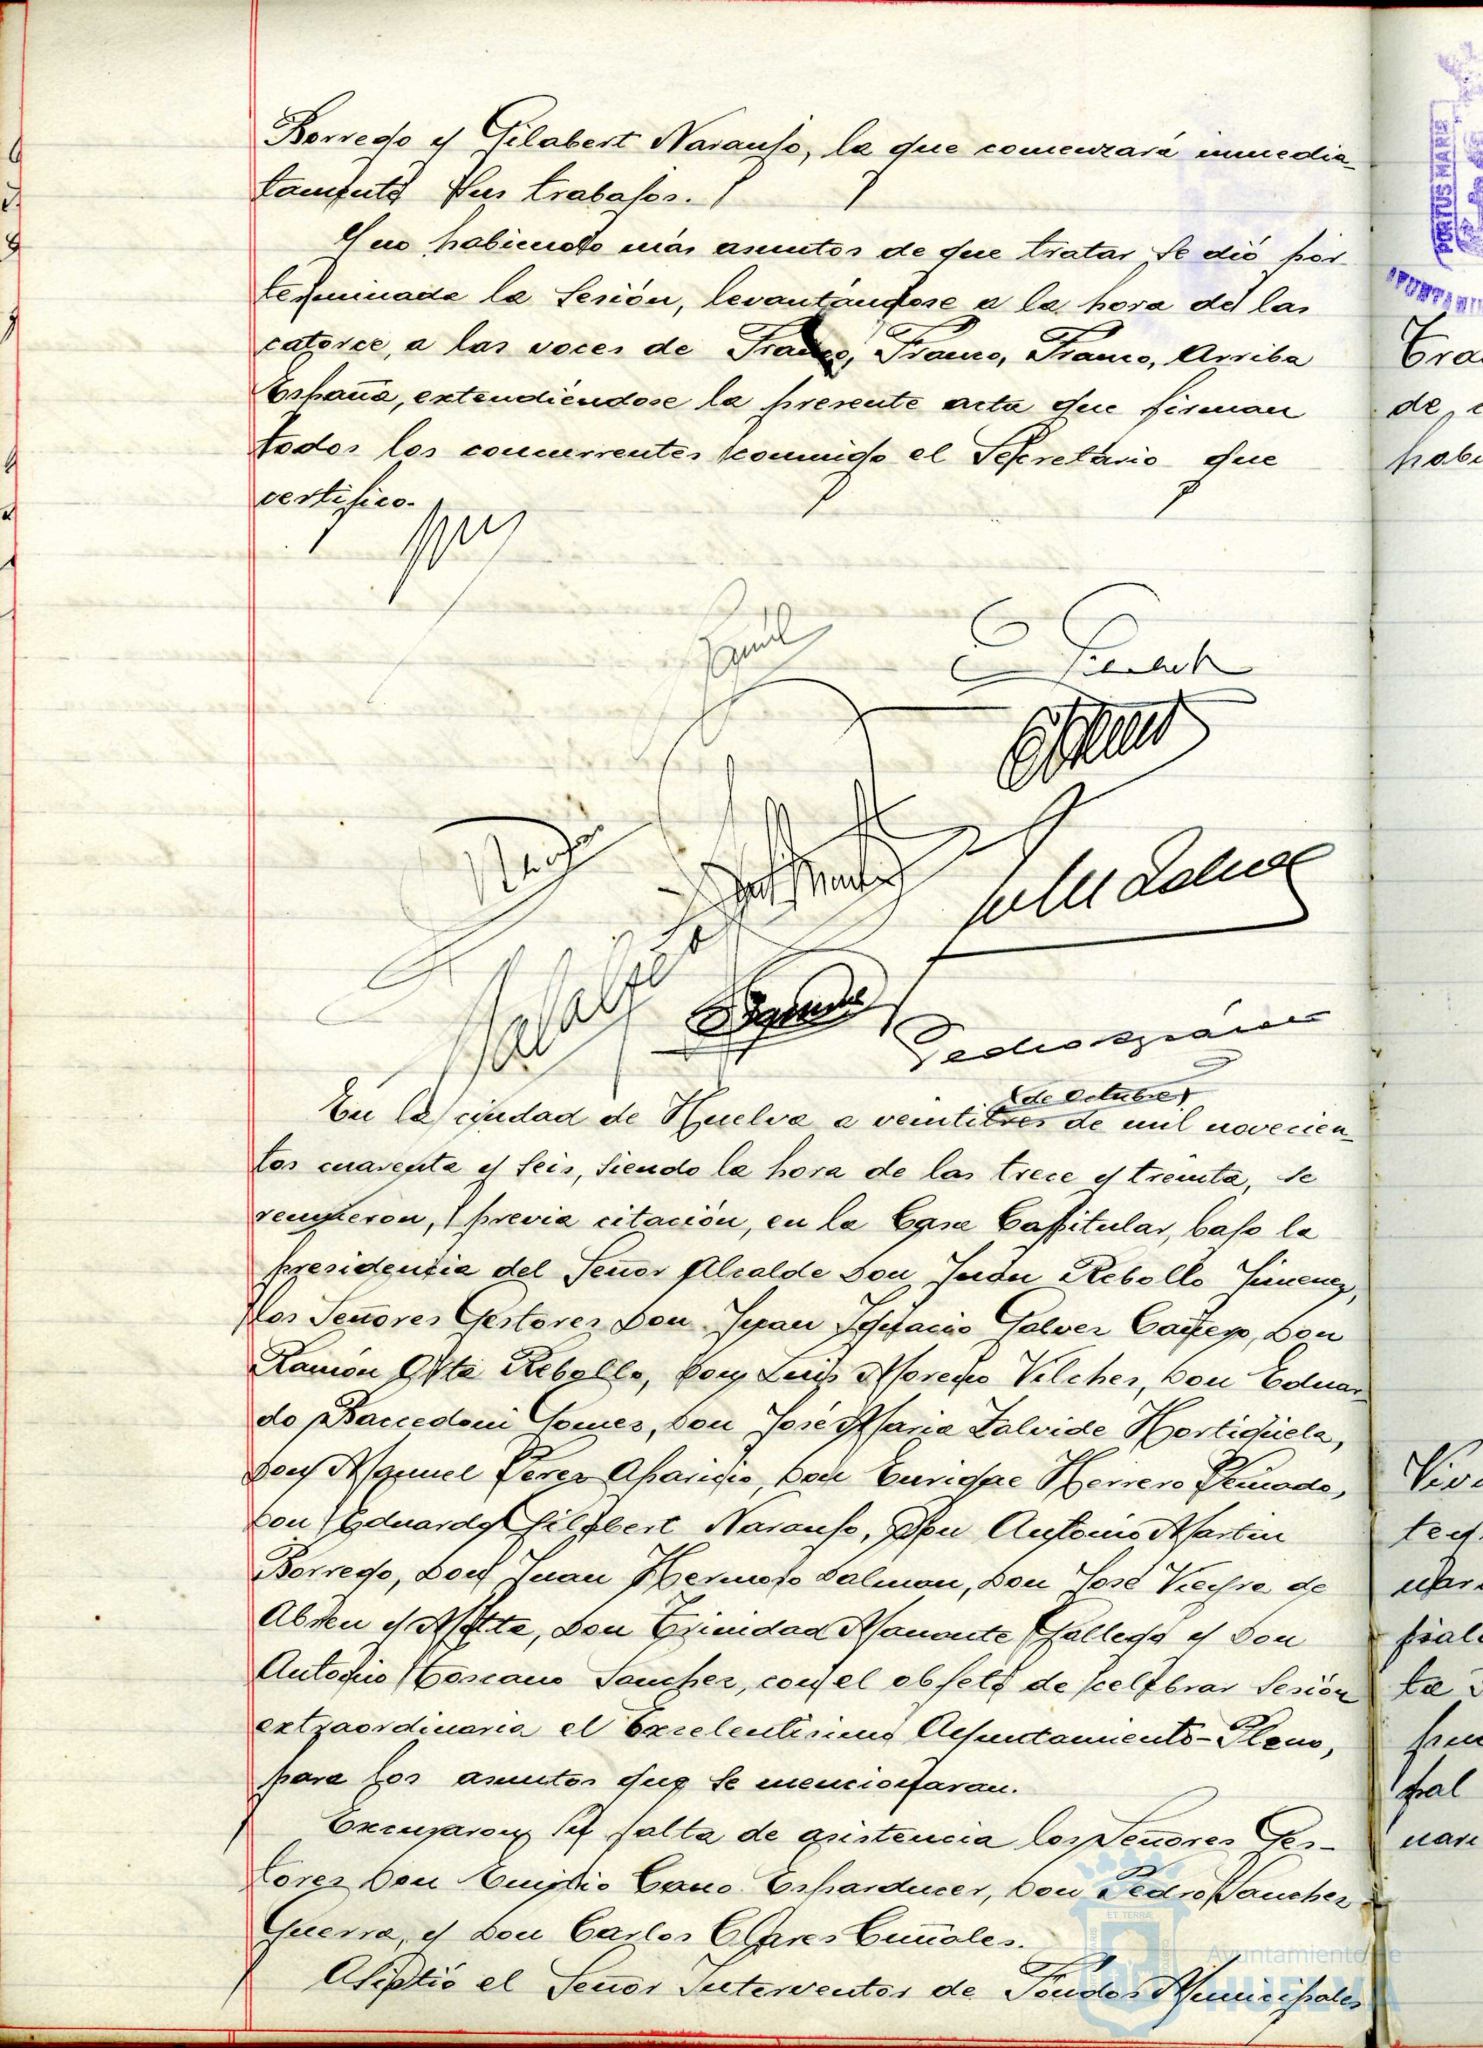 Borrego y Gilabert Naranjo, la que comenzará inmedia-
tamente sus trabajos.
Y no habiendo más asuntos de que tratar se dió por
terminada la Sesión, levantándose a la hora de las
catorce, a las voces de Franco, Franco, Franco, Arriba
España, extendiéndose la presente acta que firman
todos los concurrentes conmigo el Secretario que
certifico.
Pedro
(de Octubre)
En la ciudad de Huelva a veintitres de mil novecien-
tos cuarenta y seis, siendo la hora de las trece y treinta, se
reunieron, previa citación, en la Casa Capitular, bajo la
presidencia del Señor Alcalde Don Juan Rebollo Jimenez,
los Señores Gestores Don Juan Ignacio Galvez Cañero, Don
Ramón Orta Rebollo, Don Luis Moreno Vilches, Don Eduar-
do Baccedoni Gomez, Don José Maria Zalvide Hortigüela,
Don Manuel Perez Aparicio, Don Enrique Herrero Peinado,
Don Eduardo Gilabert Naranjo, Don Antonio Martin
Borrego, Don Juan Hermoso Dalmau, Don José Vieyra de
Abreu y Motta, Don Trinidad Manente Gallego y Don
Antonio Toscano Sanchez, con el objeto de celebrar Sesión
extraordinaria el Excelentisimo Ayuntamiento-Pleno,
para los asuntos que se mencionaran.
Excusaron su falta de asistencia los Señores Ges-
tores Don Emilio Cano Esparducer, Don Pedro Sanchez
Guerra, y Don Carlos Clares Cuñales.
Asistió el Señor Interventor de Fondos Municipales
PORTUS MARIS
ET TERRÆ
Ayuntamiento de
HUELVA